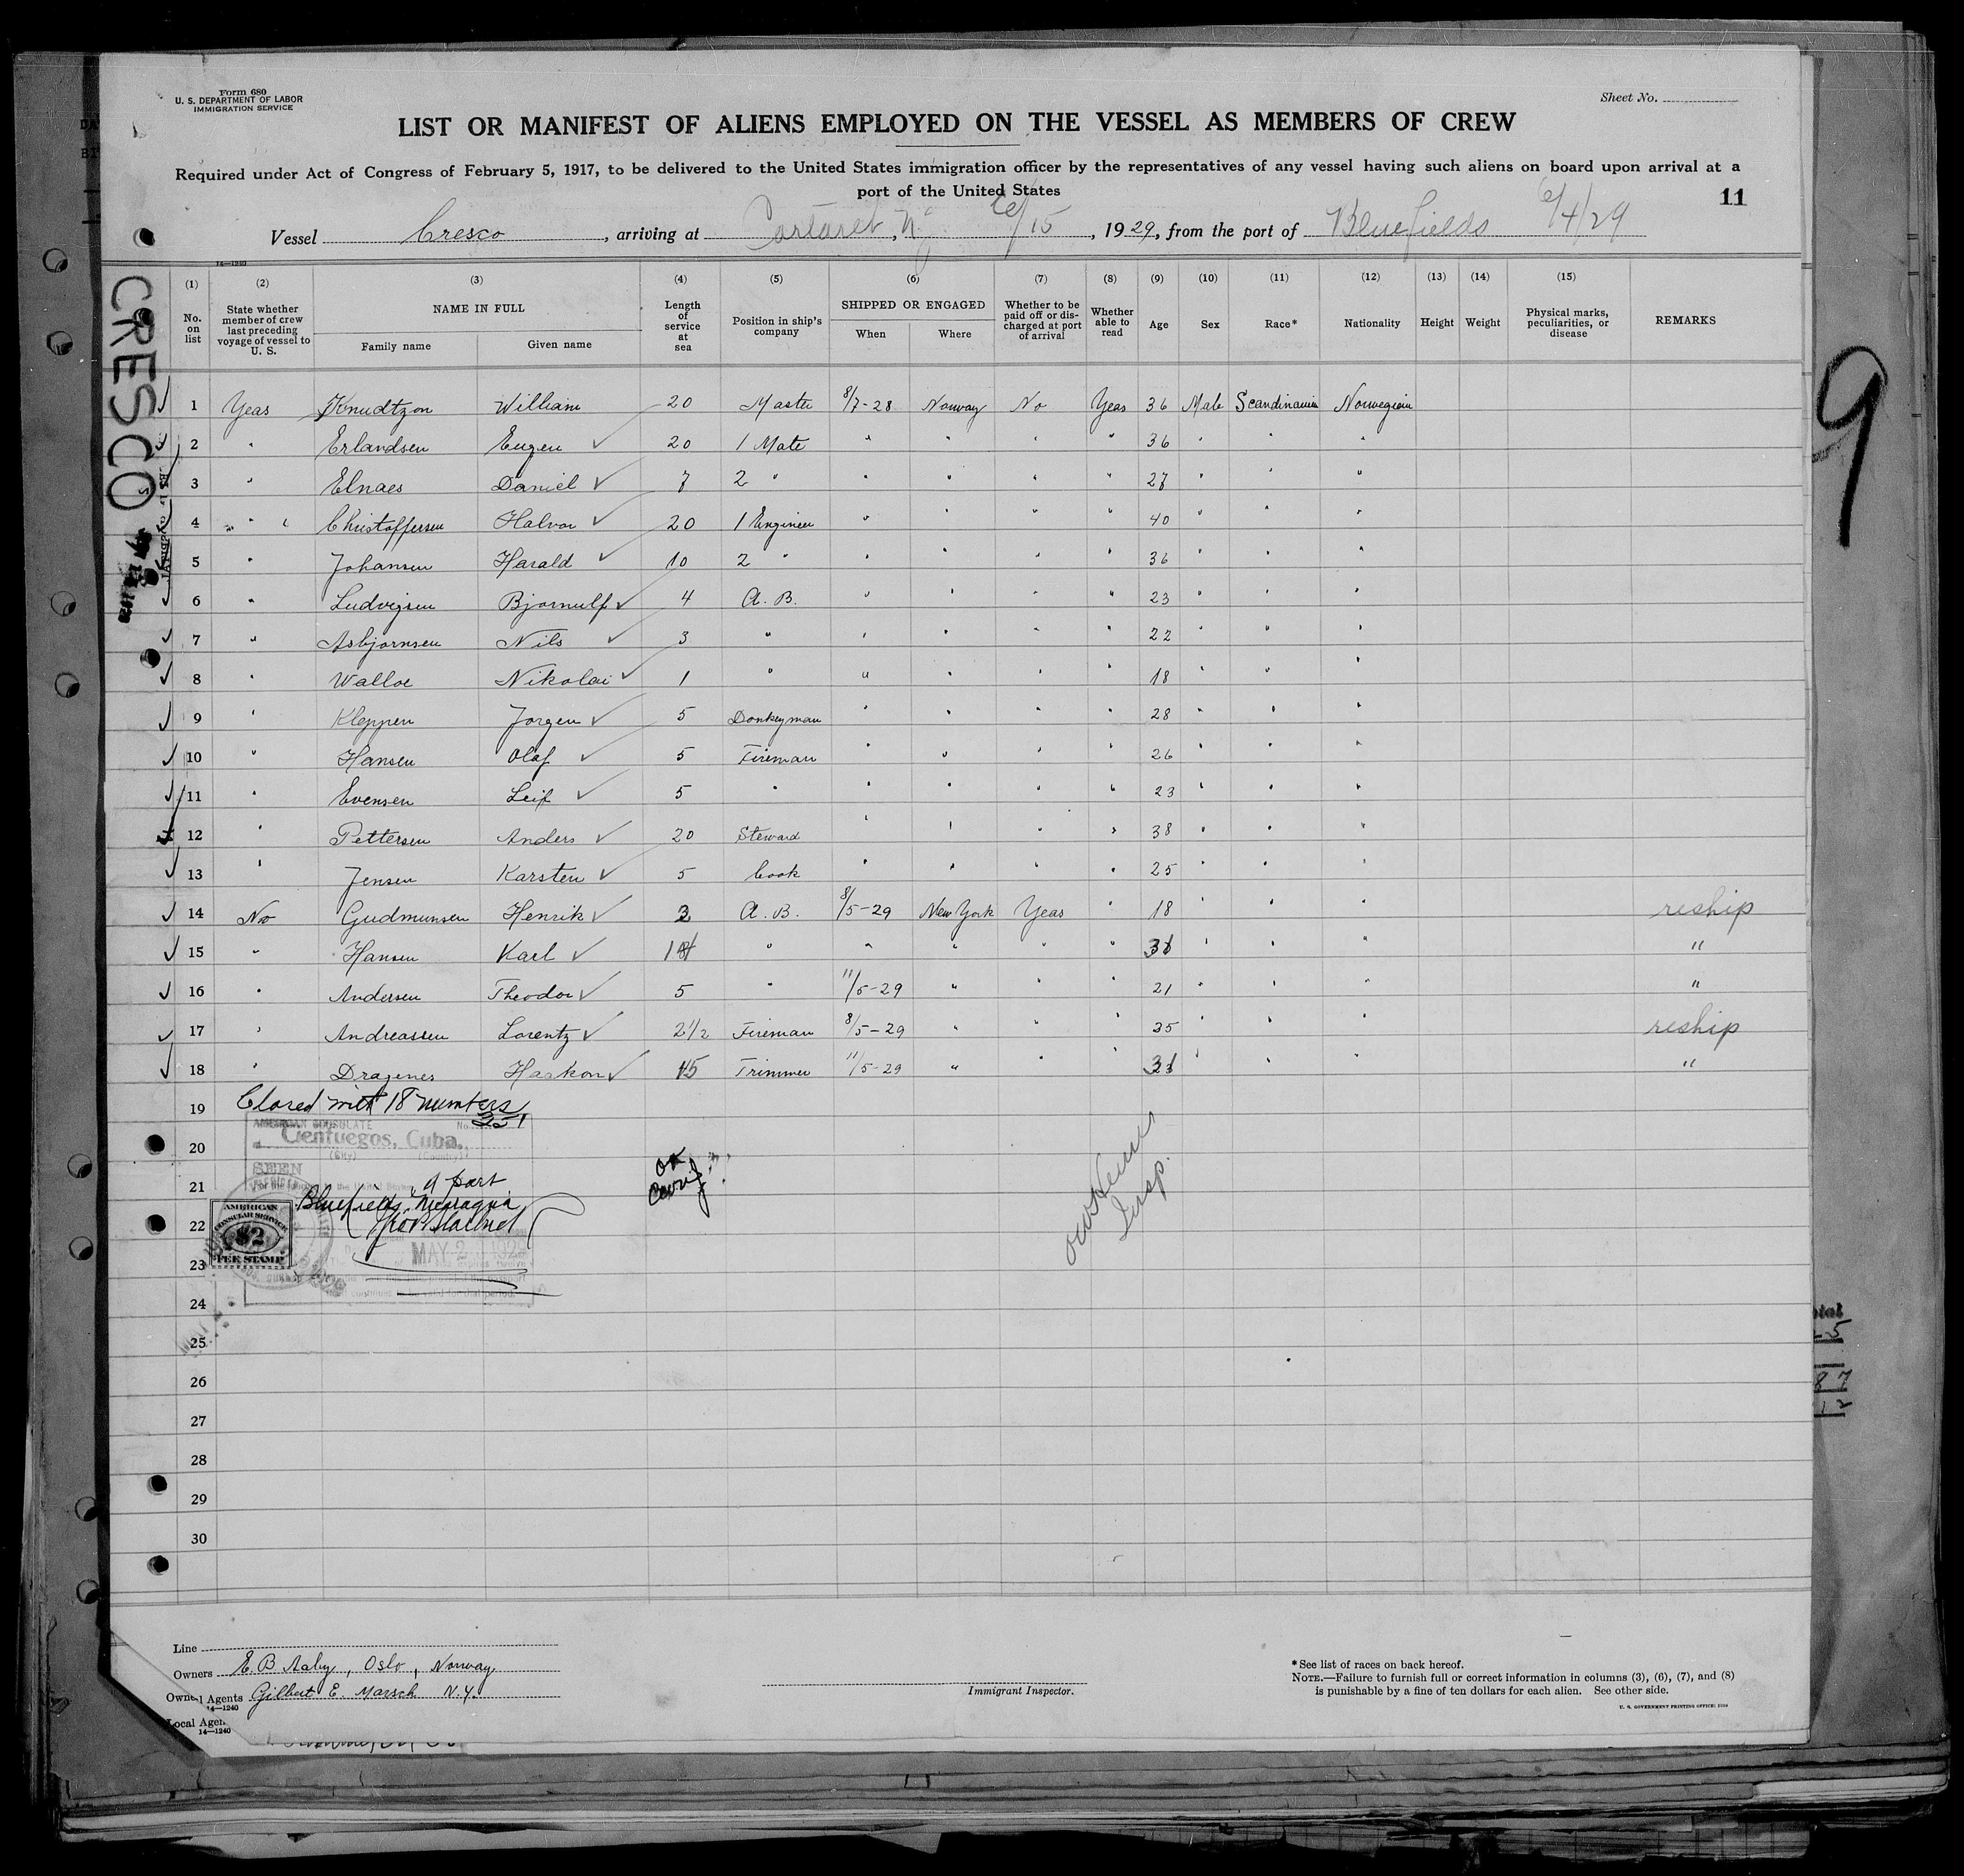 Form 680
U. S. DEPARTMENT OF LABOR
IMMIGRATION SERVICE
Sheet No.
LIST OR MANIFEST OF ALIENS EMPLOYED ON THE VESSEL AS MEMBERS OF CREW
Required under Act of Congress of February 5, 1917, to be delivered to the United States immigration officer by the representatives of any vessel having such aliens on board upon arrival at a
port of the United States
11
Vessel Cresco, arriving at Cartaret, N.J. 6/15, 1929, from the port of Bluefields 6/4/29
14—1240
(1) (2) (3) (4) (5) (6) (7) (8) (9) (10) (11) (12) (13) (14) (15)
No. on list
State whether member of crew last preceding voyage of vessel to U. S.
NAME IN FULL
Family name
Given name
Length of service at sea
Position in ship's company
SHIPPED OR ENGAGED
When
Where
Whether to be paid off or discharged at port of arrival
Whether able to read
Age
Sex
Race*
Nationality
Height
Weight
Physical marks, peculiarities, or disease
REMARKS
CRESCO
9
1 Yeas Knudtzon William 20 Master 8/7-28 Norway No Yeas 36 Male Scandinavia Norwegian
2 " Erlandsen Eugen 20 1 Mate " " " " 36 " " "
3 " Elnaes Daniel 7 2 " " " " " 27 " " "
4 " Christoffersen Halvor 20 1 Engineer " " " " 40 " " "
5 " Johansen Harald 10 2 " " " " " 36 " " "
6 " Ludvigsen Bjornulf 4 A. B. " " " " 23 " " "
7 " Asbjornsen Nils 3 " " " " " 22 " " "
8 " Walloe Nikolai 1 " " " " " 18 " " "
9 " Kleppen Jorgen 5 Donkeyman " " " " 28 " " "
10 " Hansen Olaf 5 Fireman " " " " 26 " " "
11 " Evensen Leif 5 " " " " " 23 " " "
12 " Pettersen Anders 20 Steward " " " " 38 " " "
13 " Jensen Karsten 5 Cook " " " " 25 " " "
14 No Gudmunsen Henrik 3 A. B. 8/5-29 New York Yeas " 18 " " " reship
15 " Hansen Karl " " " " " " " " "
16 " Andersen Theodor 5 " 11/5-29 " " " 21 " " " "
17 " Andreassen Lorentz 2 1/2 Fireman 8/5-29 " " " 25 " " " reship
18 " Dragenes Haakon 15 Trimmer 11/5-29 " " " " " " "
19 Closed with 18 numbers
AMERICAN CONSULATE No. 251
Cienfuegos, Cuba.
(City) (Country)
20
SEEN
21
a port
Bluefields, Nicaragua
22
AMERICAN
CONSULAR SERVICE
$2
FEE STAMP
MAY 2 192
23
OK
Insp.
24
25
26
27
28
29
30
Line
Owners E. B. Aaby, Oslo, Norway
Agents Gilbert E. Marsch N.Y.
14—1240
Local Agen
14—1240
Immigrant Inspector.
*See list of races on back hereof.
NOTE.—Failure to furnish full or correct information in columns (3), (6), (7), and (8)
is punishable by a fine of ten dollars for each alien. See other side.
U. S. GOVERNMENT PRINTING OFFICE: 1928